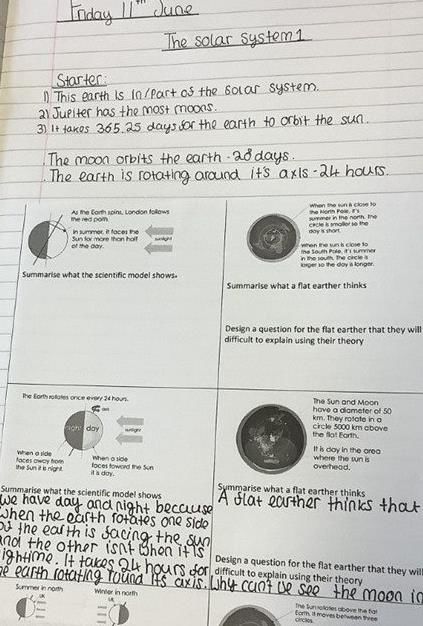 Friday 11th June
The solar system 1
Starter:
1) This earth is in/part of the solar system.
2) Jupiter has the most moons.
3) It takes 365.25 days for the earth to orbit the sun.
. The moon orbits the earth - 28 days.
. The earth is rotating around it's axis - 24 hours.
As the Earth spins, London follows
the red path.
In summer, it faces the
Sun for more than half
of the day.
sunlight
Summarise what the scientific model shows.
When the sun is close to
the North Pole, it's
summer in the north. The
circle is smaller so the
day is short.
When the sun is close to
the South Pole, it's summer
in the south. The circle is
larger so the day is longer.
Summarise what a flat earther thinks
Design a question for the flat earther that they will
difficult to explain using their theory
The Earth rotates once every 24 hours.
night day
sunlight
When a side
faces away from
the Sun it is night.
When a side
faces toward the Sun
it is day.
Summarise what the scientific model shows
we have day and night beccause
when the earth rotates one side
of the earth is facing the sun
and the other isnt when it is
nightime. It takes 24 hours for
the earth rotating round its axis.
The Sun and Moon
have a diameter of 50
km. They rotate in a
circle 5000 km above
the flat Earth.
It is day in the area
where the sun is
overhead.
Summarise what a flat earther thinks
A flat earther thinks that
Design a question for the flat earther that they will
difficult to explain using their theory
Why can't we see the moon in
Summer in north
Winter in north
The Sun rotates above the flat
Earth. It moves between three
circles.